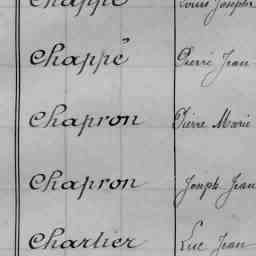 Chappé Louis Joseph
Chappé Pierre Jean
Chapron Pierre Marie
Chapron Joseph Jean
Charlier Luc Jean